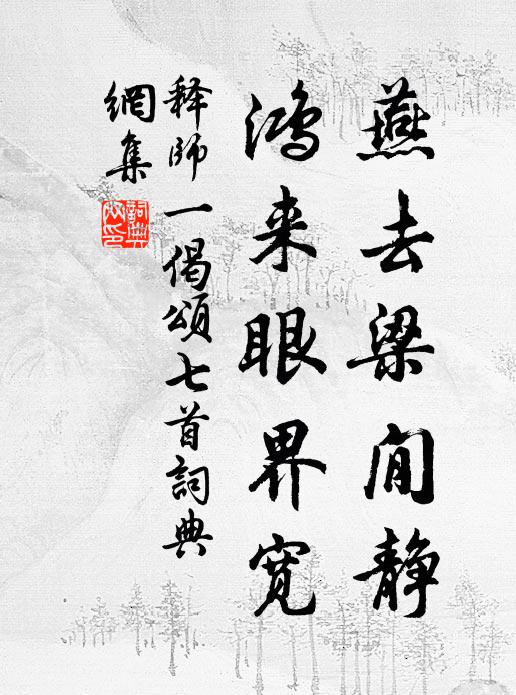 燕去梁间静
鸿来眼界宽
释师一偈颂七首詞典
網集
詞典網印